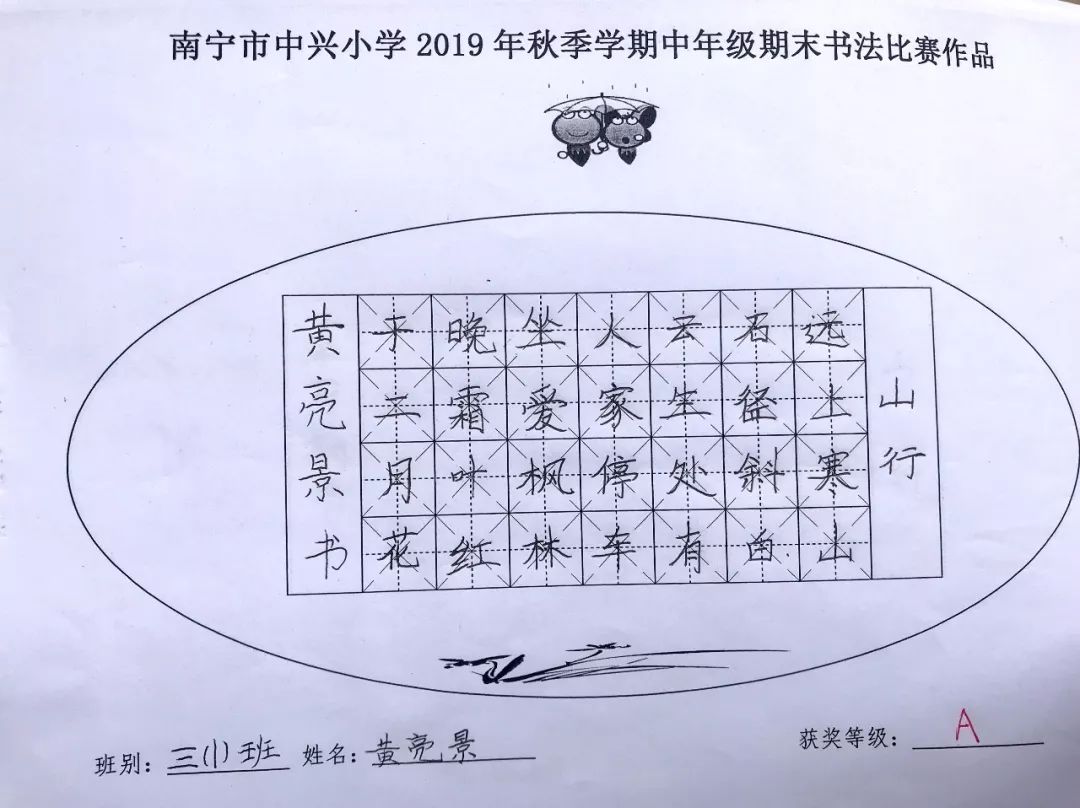 南宁市中兴小学2019年秋季学期中年级期末书法比赛作品
山行
远上寒山
石径斜白
云生处有
人家停车
坐爱枫林
晚霜叶红
于二月花
黄亮景书
班别：三(1)班 姓名：黄亮景 获奖等级：A